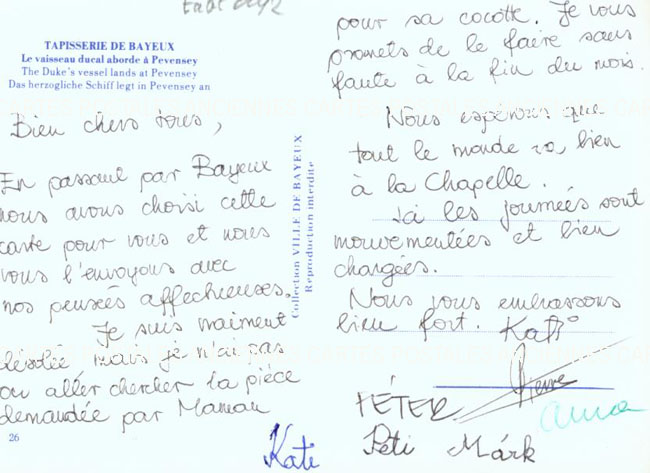 TAPISSERIE DE BAYEUX
Le vaisseau ducal aborde à Pevensey
The Duke's vessel lands at Pevensey
Das herzogliche Schiff legt in Pevensey an
Bien chers tous,
En passant par Bayeux
nous avons choisi cette
carte pour vous et nous
vous l'envoyons avec
nos pensées affectueuses.
Je suis vraiment
désolée mais je n'ai pas
pu aller chercher la pièce
demandée par Maman
26
Collection VILLE DE BAYEUX
Reproduction interdite
pour sa cocotte. Je vous
promets de le faire sans
faute à la fin du mois.
Nous espérons que
tout le monde va bien
à la Chapelle.
Ici les journées sont
mouvementées et bien
chargées.
Nous vous embrassons
bien fort. Kati
Pierre
PÉTER
Anna
Kati Peti Márk